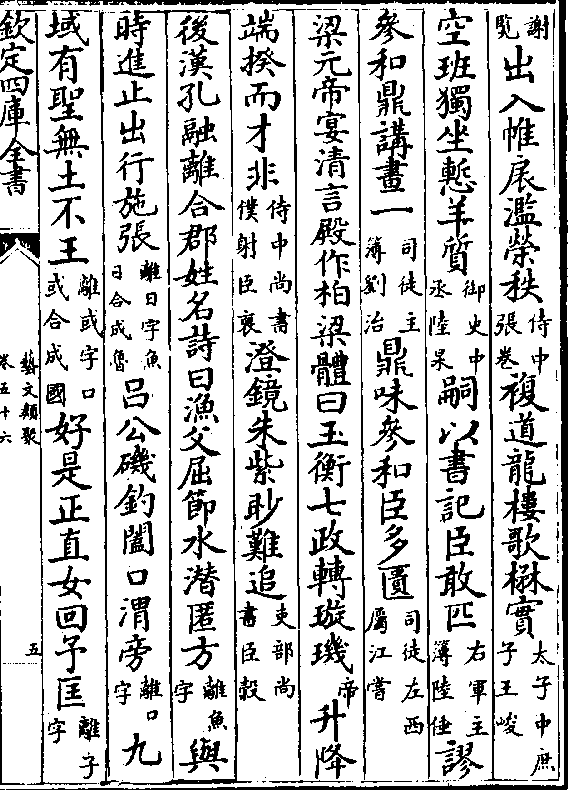 謝覽出入帷扆濫榮秩侍中張卷複道龍樓歌楙實太子中庶子王峻
空班獨坐慙羊質御史中丞陸杲嗣以書記臣敢匹右軍主簿陸倕謬
參和鼎講畫一司徒主簿劉洽鼎味參和臣多匱司徒左西屬江葺
梁元帝宴清言殿作柏梁體曰玉衡七政轉璇璣帝升降
端揆而才非侍中尚書僕射臣褒澄鏡朱紫眇難追吏部尚書臣瑴
後漢孔融離合郡姓名詩曰漁父屈節水潛匿方離魚字與
時進止出行施張離日字魚日合成魯呂公磯釣闔口渭旁離口字九
域有聖無土不王離或字口或合成國好是正直女回予匡離子字
欽定四庫全書
藝文類聚卷五十六
五